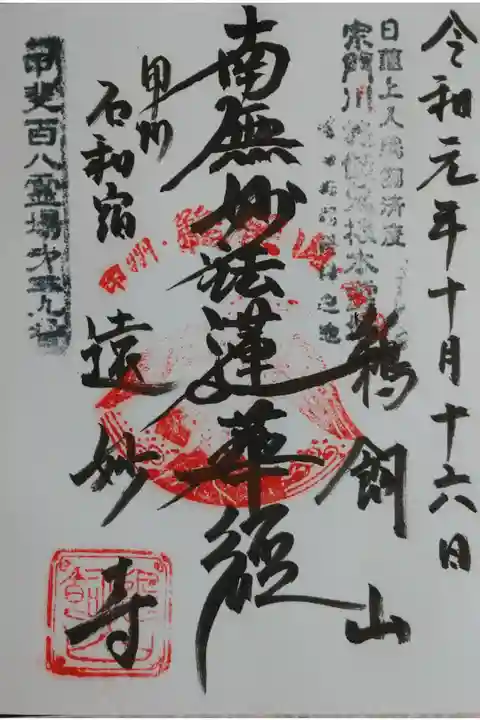 令和元年十月十六日
日蓮上人
済度
宗門川施餓鬼根本
之地
鵜飼山
南無妙法蓮華経
甲州
石和宿
遠妙寺
甲州・鵜飼山
甲斐百八霊場